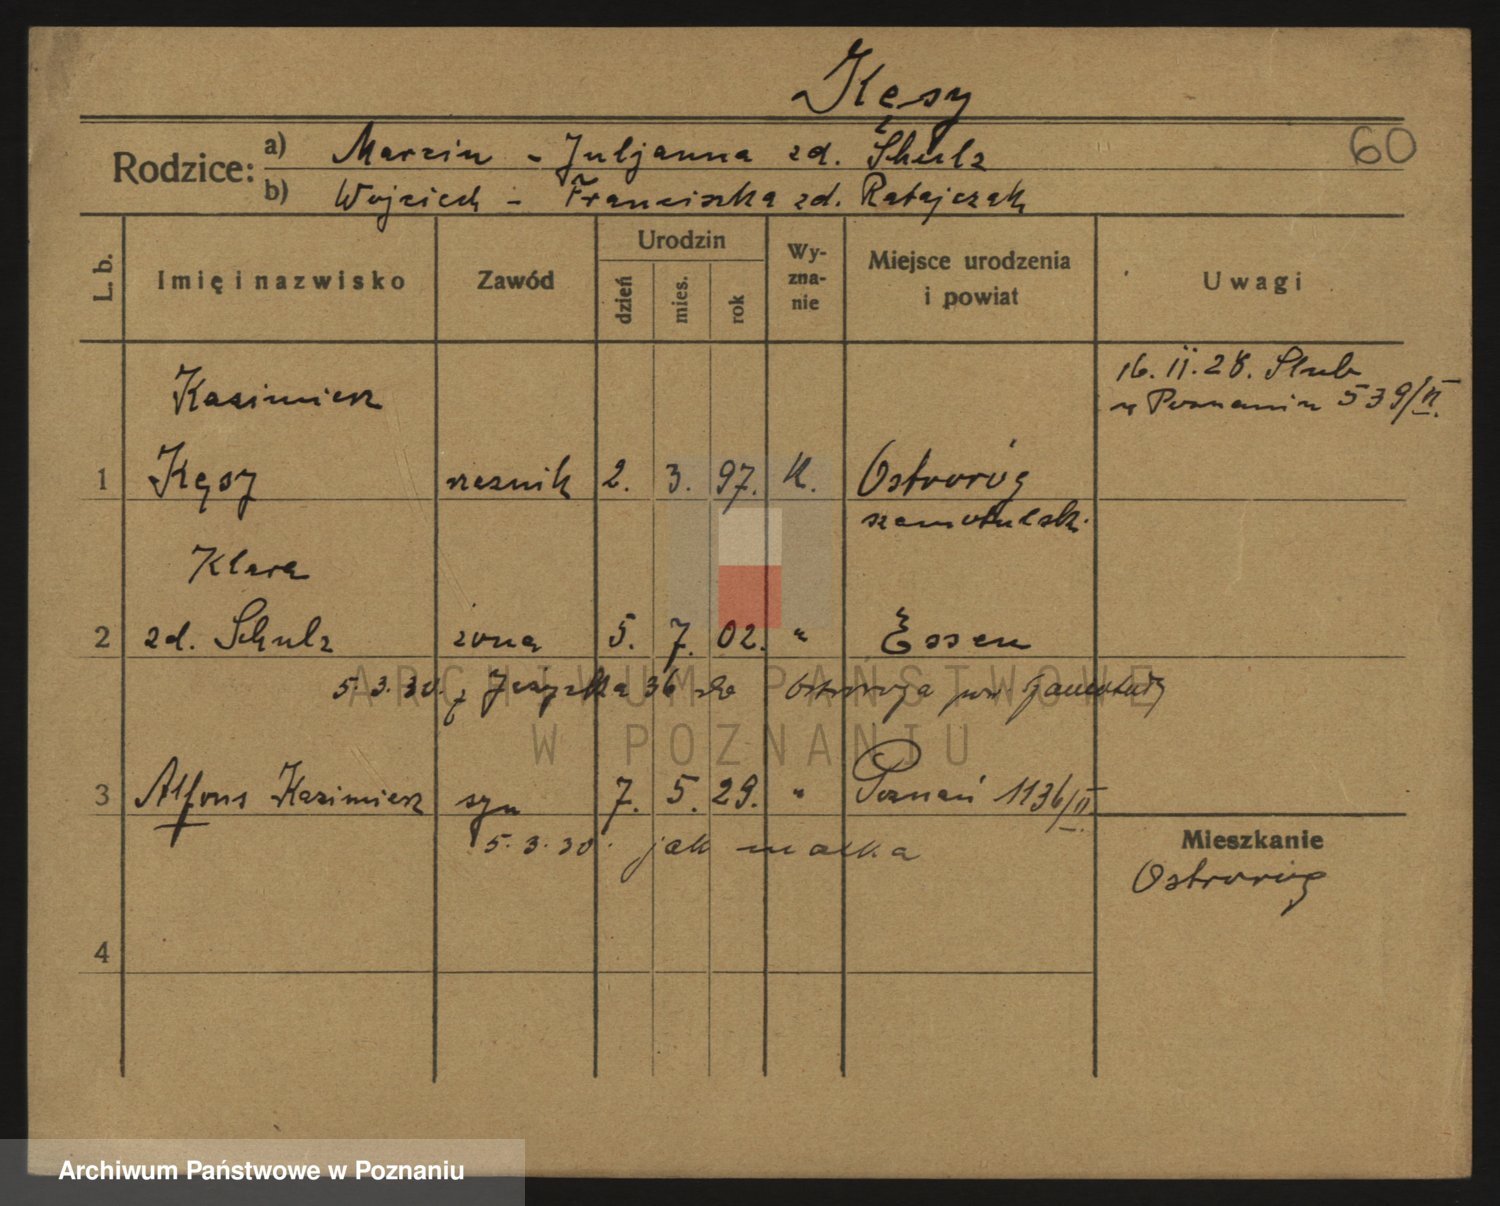 Kęsy
60
Rodzice: a) Marcin - Juljanna zd. Schulz
b) Wojciech - Franciszka zd. Ratajczak
L. b. Imię i nazwisko Zawód Urodzin Wyznanie Miejsce urodzenia i powiat Uwagi
dzień mies. rok
16. II. 28. Slub
w Poznaniu 539/II.
Kazimierz
1 Kęsy rzeznik 2. 3. 97. K. Ostroróg
szamotulsk.
Klara
2 zd. Schulz zona 5. 7. 02. " Essen
5.3.30. z Jeżycka 36 do Ostroroga pow Szamotuły
3 Alfons Kazimierz syn 7. 5. 29. " Poznań 1136/II.
5.3.30. jak matka
Mieszkanie
Ostroróg
4
ARCHIWUM PAŃSTWOWE
W POZNANIU
Archiwum Państwowe w Poznaniu